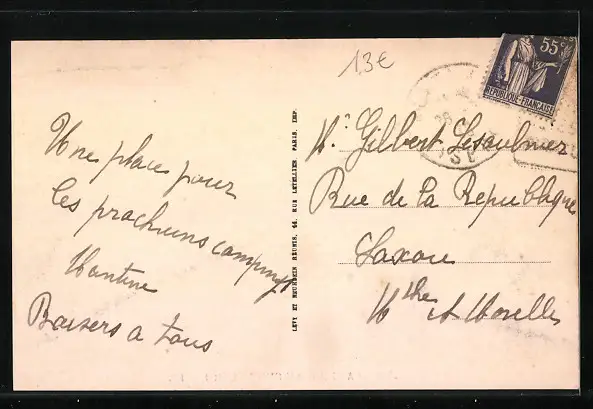 13€
55c
REPUBLIQUE FRANÇAISE
Une place pour
les prochains campings
Baisers a tous
LEVY ET NEURDEIN REUNIS, 44, RUE LETELLIER PARIS, IMP.
Mr Gilbert Lesaulnier
Rue de la Republique
Laxou
Mthe et Moselle